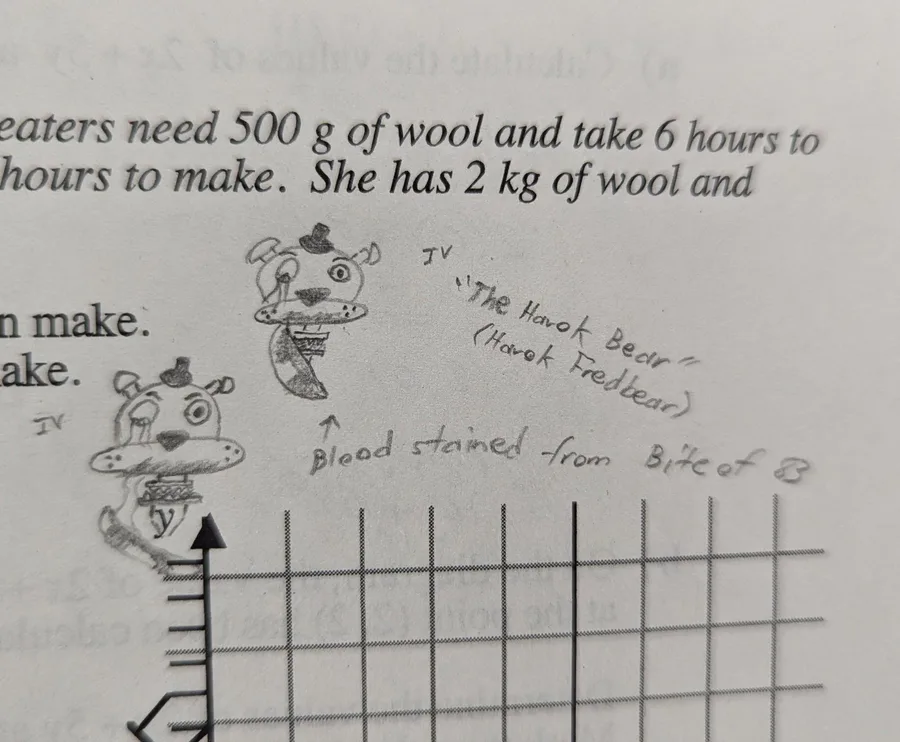 eaters need 500 g of wool and take 6 hours to
hours to make. She has 2 kg of wool and
IV
"The Havok Bear"
(Havok Fredbear)
n make.
ake.
IV
Blood stained from Bite of
y